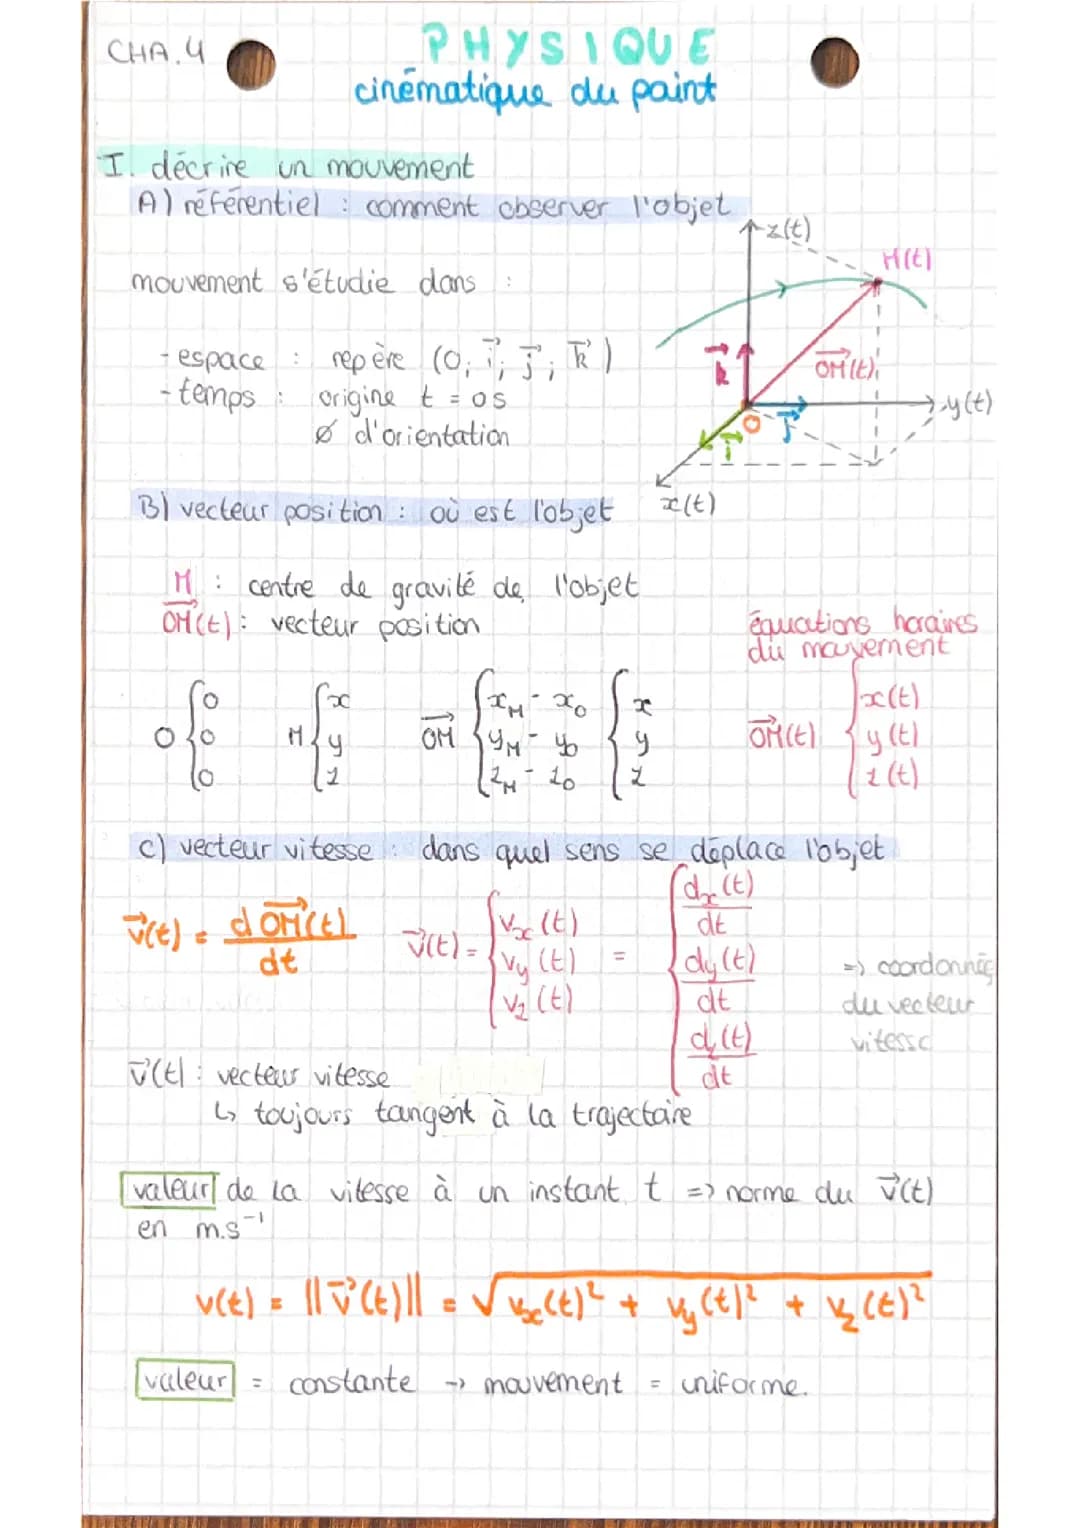 CHA.4
PHYSIQUE
cinématique du point
I. décrire un mouvement
A) référentiel : comment observer l'objet
z(t)
M(t)
mouvement s'étudie dans :
- espace : repère (O; i⃗; j⃗; k⃗)
k⃗
OM⃗(t)
- temps : origine t = 0 s
y(t)
O
j⃗
i⃗
Ø d'orientation
x(t)
B) vecteur position : où est l'objet
M : centre de gravité de l'objet
OM⃗(t) : vecteur position
équations horaires
du mouvement
O { 0 0 0
M { x y z
OM⃗ { x_M - x_O y_M - y_O z_M - z_O { x y z
OM⃗(t) { x(t) y(t) z(t)
C) vecteur vitesse : dans quel sens se déplace l'objet
v⃗(t) = dOM⃗(t)/dt
v⃗(t) = { v_x(t) v_y(t) v_z(t) = { d_x(t)/dt d_y(t)/dt d_z(t)/dt
=> coordonnées
du vecteur
vitesse
v⃗(t) : vecteur vitesse
↳ toujours tangent à la trajectoire
valeur de la vitesse à un instant t => norme du v⃗(t)
en m.s⁻¹
v(t) = ||v⃗(t)|| = √v_x(t)² + v_y(t)² + v_z(t)²
valeur = constante → mouvement = uniforme.